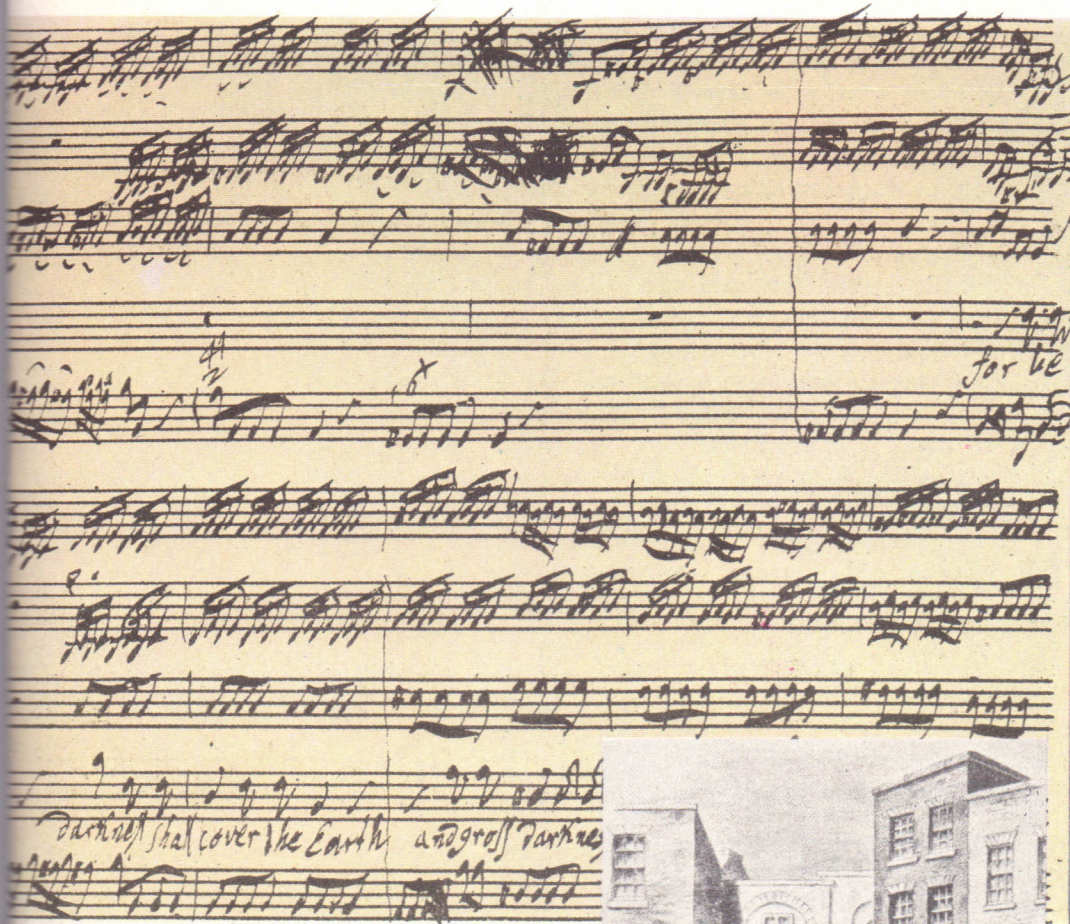 for be
darkness shall cover the Earth and gross darknes